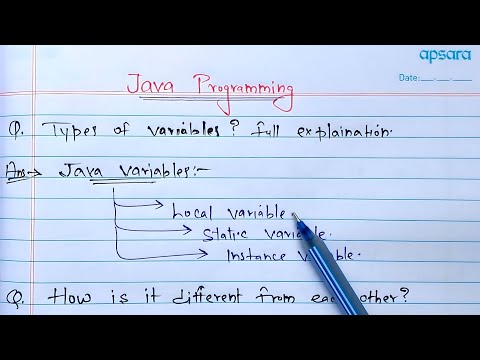 apsara
Date:
Java Programming
Q. Types of variables? full explaination.
Ans→ Java variables:-
Local variable
Static variable.
Instance variable.
Q. How is it different from each other?